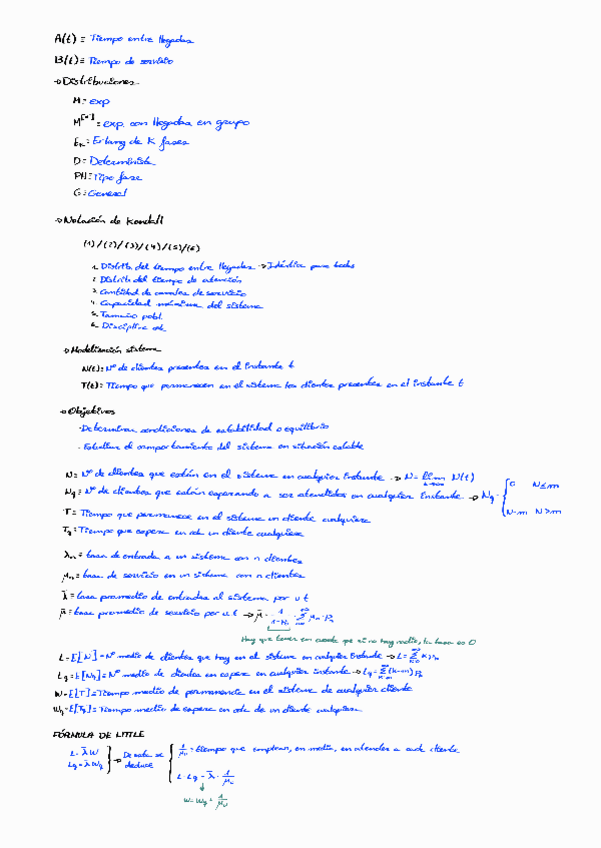 A(t) ≡ Tiempo entre llegadas
B(t) ≡ Tiempo de servicio
→ Distribuciones
M = exp
M^[x] = exp. con llegadas en grupo
E_k = Erlang de K fases
D = Determinista
PH = Tipo fase
G = General
→ Notación de Kendall
(1)/(2)/(3)/(4)/(5)/(6)
1. Distrib. del tiempo entre llegadas → Idéntica para todos
2. Distrib. del tiempo de atención
3. Cantidad de canales de servicio
4. Capacidad máxima del sistema
5. Tamaño pobl.
6. Disciplina cola
→ Modelización sistema
N(t) = Nº de clientes presentes en el instante t
T(t) = Tiempo que permanecen en el sistema los clientes presentes en el instante t
→ Objetivos
· Determinar condiciones de estabilidad o equilibrio
· Estudiar el comportamiento del sistema en situación estable
N = Nº de clientes que están en el sistema en cualquier instante → N = lim N(t)
N_q = Nº de clientes que están esperando a ser atendidos en cualquier instante → N_q = { 0 N ≤ m
N-m N > m
T = Tiempo que permanece en el sistema un cliente cualquiera
T_q = Tiempo que espera en cola un cliente cualquiera
λ_n = tasa de entrada a un sistema con n clientes
μ_n = tasa de servicio en un sistema con n clientes
λ̄ = tasa promedio de entradas al sistema por u.t
μ̄ = tasa promedio de servicio por u.t → μ̄ = 1/(1-p₀) · Σ μ_n · p_n
Hay que tener en cuenta que si no hay nadie, la tasa es 0
L = E[N] = Nº medio de clientes que hay en el sistema en cualquier instante → L = Σ k p_k
L_q = E[N_q] = Nº medio de clientes en espera en cualquier instante → L_q = Σ (k-m) p_k
W = E[T] = Tiempo medio de permanencia en el sistema de cualquier cliente
W_q = E[T_q] = Tiempo medio de espera en cola de un cliente cualquiera
FÓRMULA DE LITTLE
L = λ̄ W
L_q = λ̄ W_q
} → De nada se deduce
{ 1/μ = tiempo que emplean, en media, en atender a cada cliente
L - L_q = λ̄ · 1/μ
↓
W = W_q + 1/μ